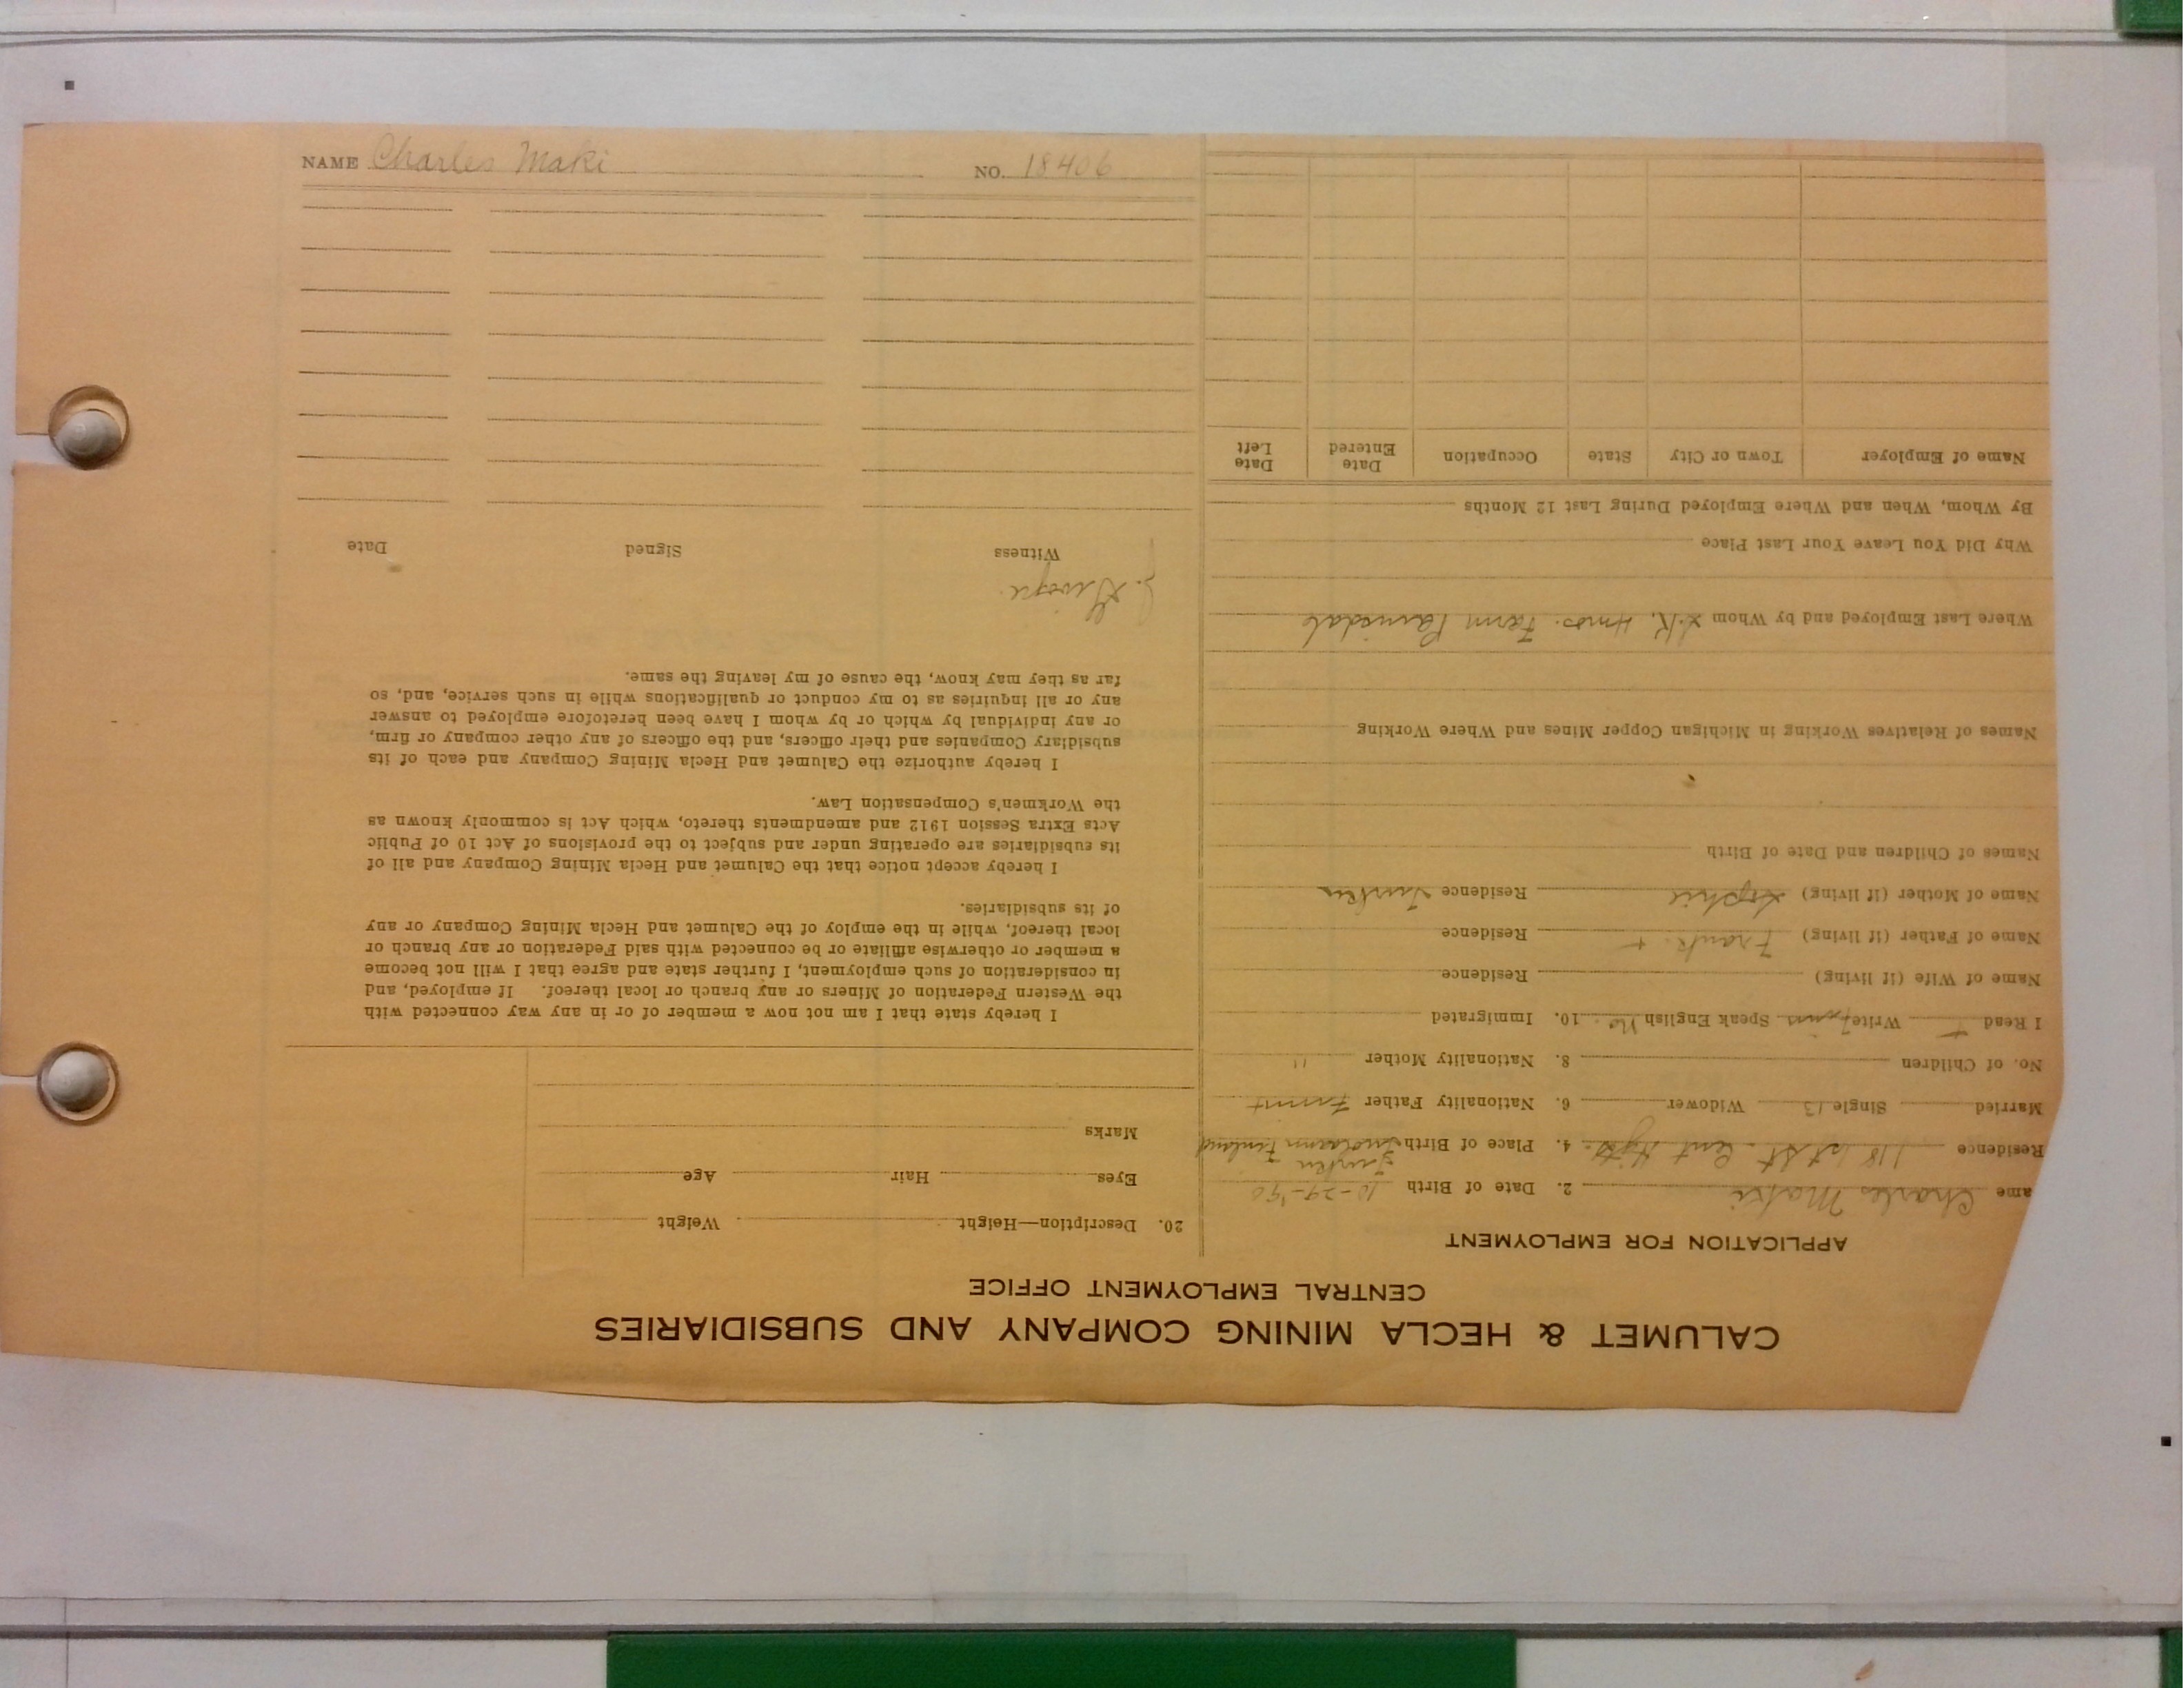 NAME Charles Maki NO. 18406
CALUMET & HECLA MINING COMPANY AND SUBSIDIARIES
CENTRAL EMPLOYMENT OFFICE
APPLICATION FOR EMPLOYMENT
ame Charles Maki 2. Date of Birth 10-29-'90
Residence 118 1st St. 4. Place of Birth Finland
Married Single 13 Widower 6. Nationality Father
No. of Children 8. Nationality Mother "
I Read Write Speak English No. 10. Immigrated
Name of Wife (if living) Residence
Name of Father (if living) Frank + Residence
Name of Mother (if living) Sophie Residence
Names of Children and Date of Birth
Names of Relatives Working in Michigan Copper Mines and Where Working
Where Last Employed and by Whom Farm
Why Did You Leave Your Last Place
By Whom, When and Where Employed During Last 12 Months
Name of Employer Town or City State Occupation Date Entered Date Left
20. Description—Height Weight
Eyes Hair Age
Marks
I hereby state that I am not now a member of or in any way connected with
the Western Federation of Miners or any branch or local thereof. If employed, and
in consideration of such employment, I further state and agree that I will not become
a member or otherwise affiliate or be connected with said Federation or any branch or
local thereof, while in the employ of the Calumet and Hecla Mining Company or any
of its subsidiaries.
I hereby accept notice that the Calumet and Hecla Mining Company and all of
its subsidiaries are operating under and subject to the provisions of Act 10 of Public
Acts Extra Session 1912 and amendments thereto, which Act is commonly known as
the Workmen's Compensation Law.
I hereby authorize the Calumet and Hecla Mining Company and each of its
subsidiary Companies and their officers, and the officers of any other company or firm,
or any individual by which or by whom I have been heretofore employed to answer
any or all inquiries as to my conduct or qualifications while in such service, and, so
far as they may know, the cause of my leaving the same.
Witness Signed Date